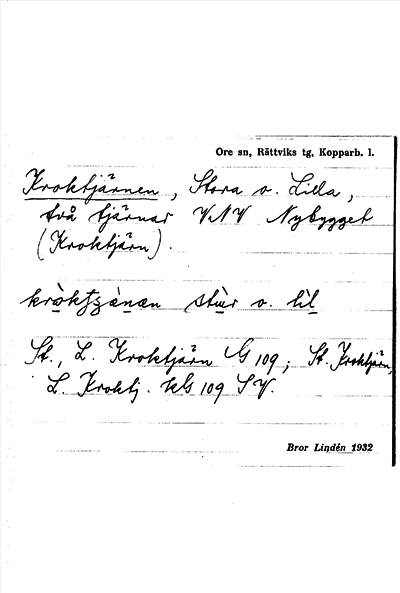 Ore sn, Rättviks tg, Kopparb. l.
Kroktjärnen, Stora o. Lilla,
två tjärnar VNV Nybygget
(Kroktjärn).
stùr o. lìl
St., L. Kroktjärn G 109; St. Kroktjärn,
L. Kroktj. hG 109 SV.
Bror Lindén 1932